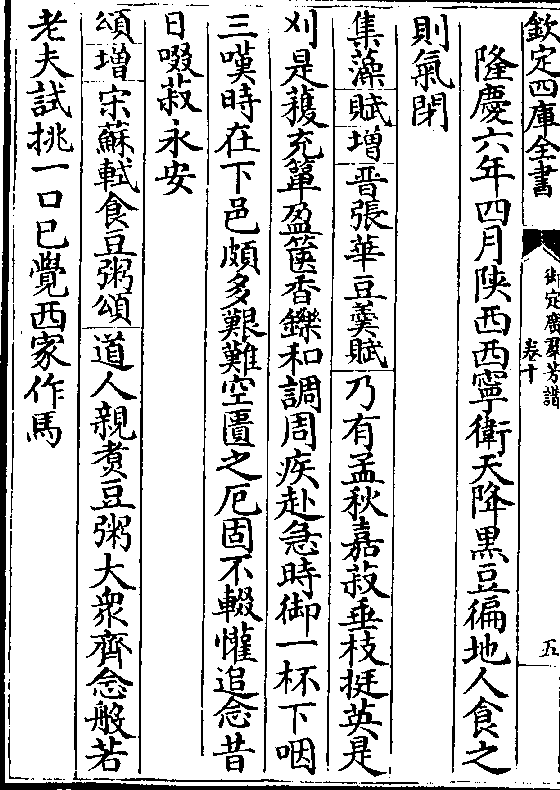 欽定四庫全書
御定廣羣芳譜
卷十
五
隆慶六年四月陝西西寧衛天降黒豆徧地人食之
則氣閉
集藻賦增晉張華豆羮賦乃有孟秋嘉菽垂枝挺英是
刈是穫充簞盈篋香鑠和調周疾赴急時御一杯下咽
三嘆時在下邑頗多艱難空匱之厄固不輟懽追念昔
日啜菽永安
頌增宋蘇軾食豆粥頌道人親煑豆粥大衆齊念般若
老夫試挑一口已覺西家作馬